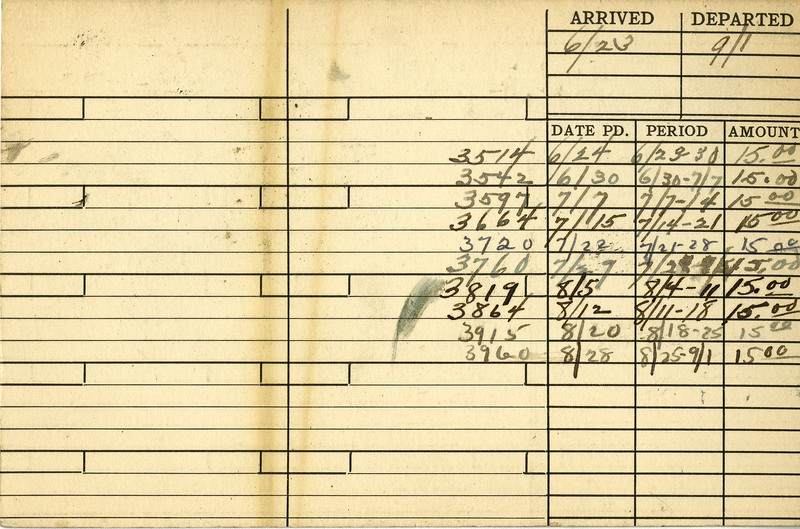 ARRIVED DEPARTED
6/23 9/1
DATE PD. PERIOD AMOUNT
3514 6/24 6/23-30 15.00
3542 6/30 6/30-7/7 15.00
3597 7/7 7/7-14 15.00
3664 7/15 7/14-21 15.00
3720 7/22 7/21-28 15.00
3760 7/27 15.00
3819 8/5 8/4-11 15.00
3864 8/12 8/11-18 15.00
3915 8/20 8/18-25 15.00
3960 8/28 8/25-9/1 15.00